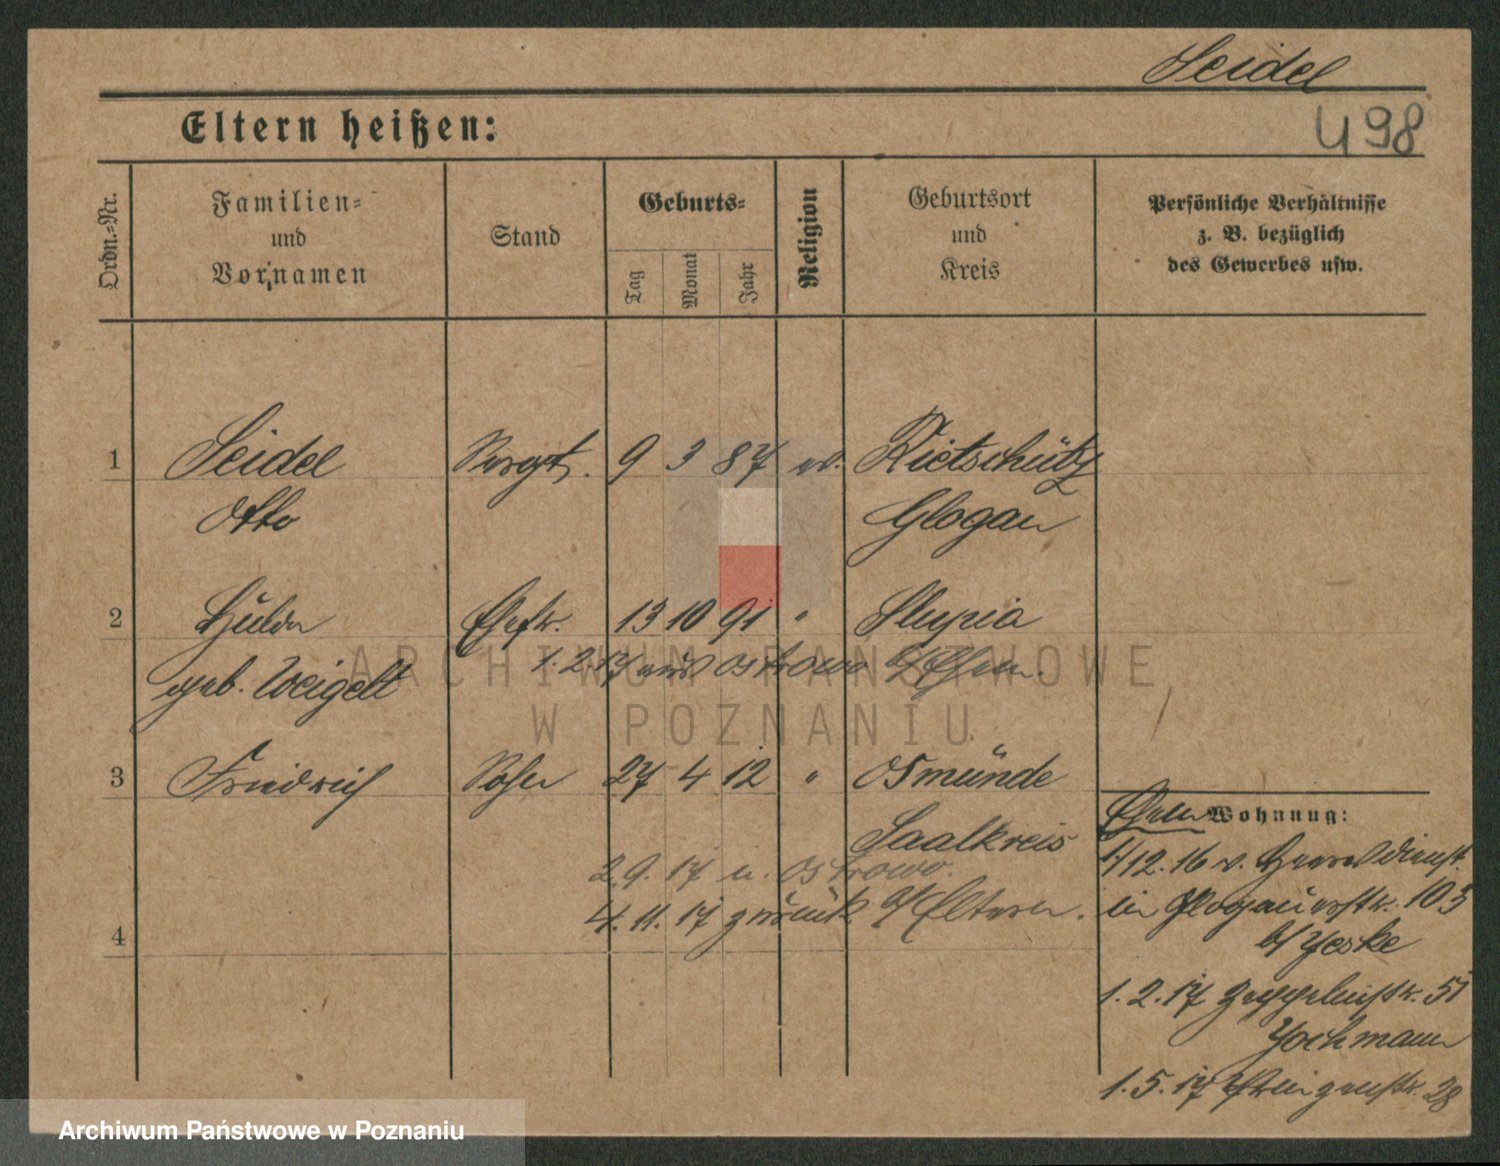 Seidel
498
Eltern heißen:
Ordn.-Nr.
Familien-
und
Vornamen
Stand
Geburts-
Tag
Monat
Jahr
Religion
Geburtsort
und
Kreis
Persönliche Verhältnisse
z. B. bezüglich
des Gewerbes usw.
1 Seidel Sergt. 9 3 87 ev. Rietschütz
Otto Glogau
2 Hulda Ehefr. 13 10 91 " Slupia
geb. Weigelt 1.2.17 aus Ostrowo
3 Friedrich Sohn 27 4 12 " Osmünde
Saalkreis
2.9.17 n. Ostrowo.
4.11.17 zurück b/ Eltern.
4
Wohnung:
1/12.16 v. Heeresdienst
in Glogauerstr. 103
b/ Jeske
1.2.17 Zeppelinstr. 51
Jochmann
1.5.17 28
ARCHIWUM PAŃSTWOWE
W POZNANIU
Archiwum Państwowe w Poznaniu